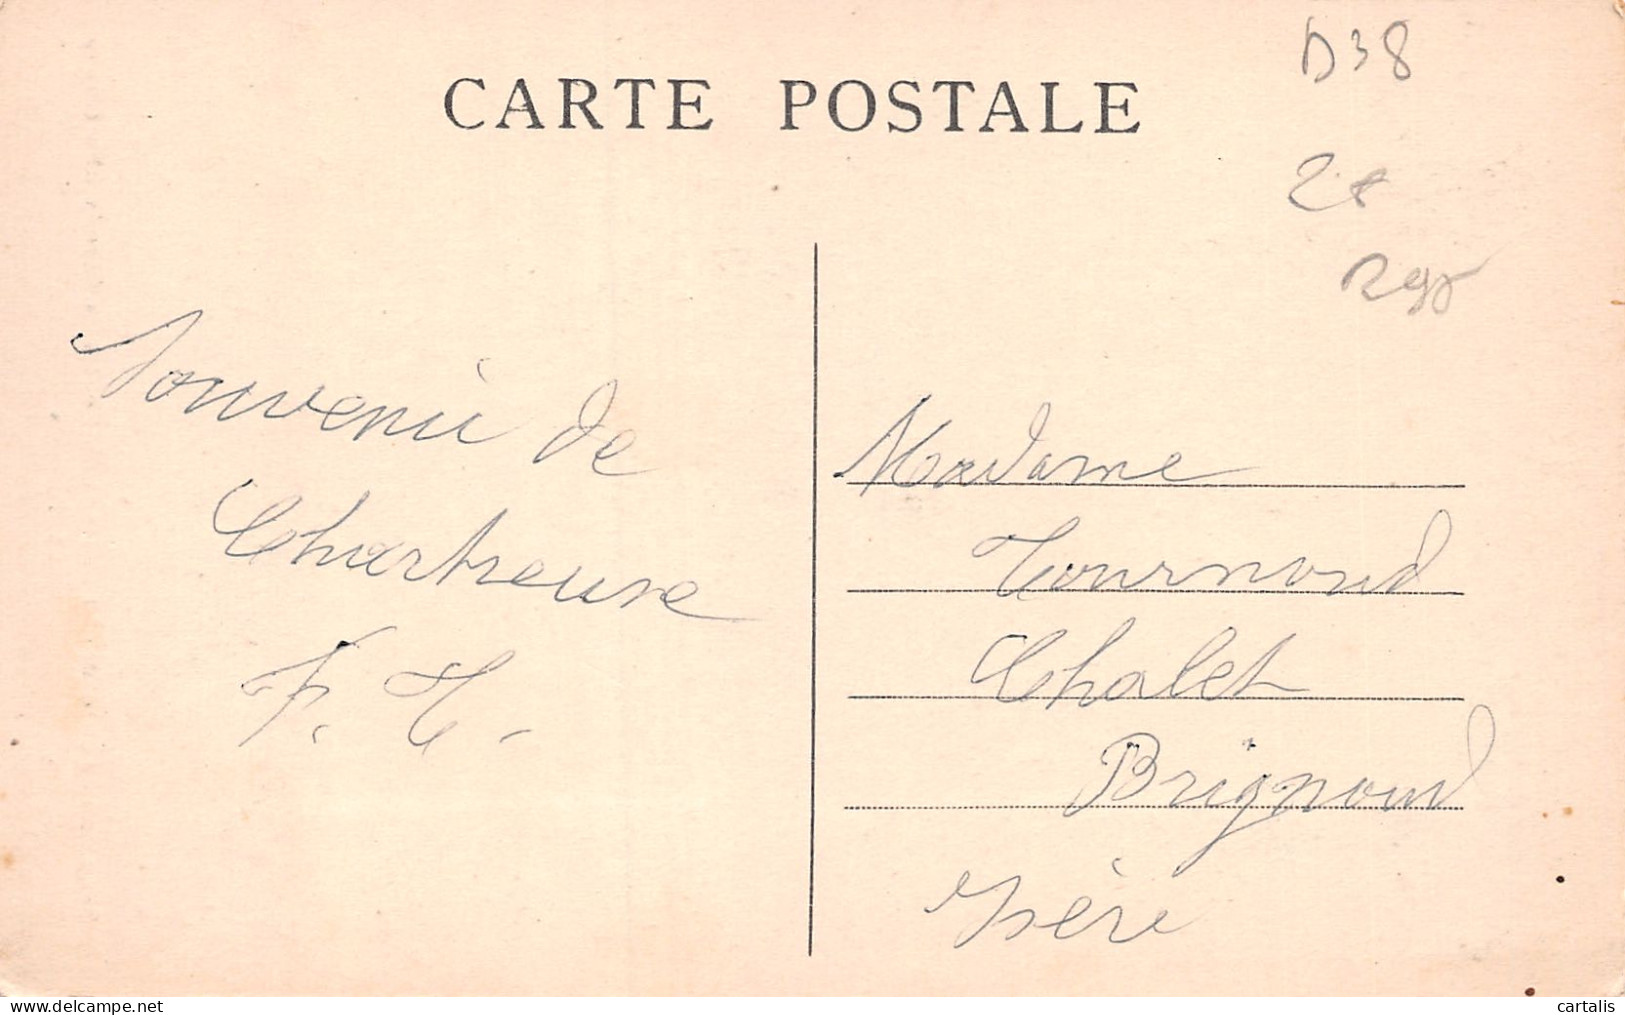 CARTE POSTALE
D38
Souvenir de
Chartreuse
F. T.
Madame
Tournoud
Chalet
Brignoud
Isère
www.delcampe.net
cartalis